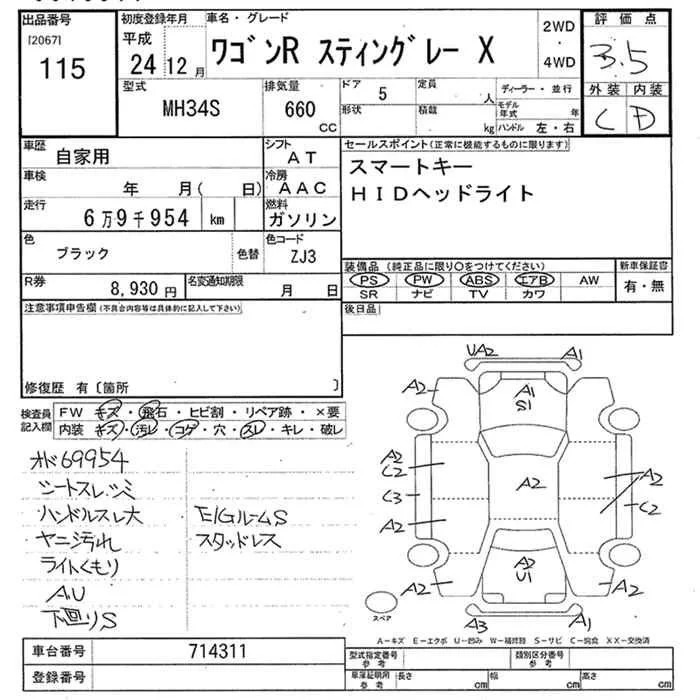 出品番号
[2067]
115
初度登録年月
平成
24 12 月
車名・グレード
ワゴンR スティングレー X
2WD
・
4WD
評価点
3.5
外装 内装
C D
型式
MH34S
排気量
660
CC
ドア 5
形状
定員
人
積載
kg
ディーラー・並行
モデル年式 年
ハンドル 左・右
車歴
自家用
シフト
AT
車検
年 月( 日)
冷房
AAC
走行
6万9千954 km
燃料
ガソリン
色
ブラック
色替
色コード
ZJ3
R券
8,930 円
名変通知期限
月 日
セールスポイント(正常に機能するものに限ります)
スマートキー
HIDヘッドライト
装備品(純正品に限り○をつけてください)
PS PW ABS エアB AW
SR ナビ TV カワ
新車保証書
有・無
後日品
注意事項申告欄(不具合内容等は具体的に記入して下さい)
修復歴 有〔箇所 〕
検査員
記入欄
FW キズ・飛石・ヒビ割・リペア跡・×要
内装 キズ・汚レ・コゲ・穴・スレ・キレ・破レ
オド69954
シートスレ、シミ
ハンドルスレ大
ヤニ汚れ
ライトくもり
A,U
下回りS
E/GルームS
スタッドレス
UA2 A1
A2
A1
S1
A2
C2
C3
A2
A2
A2
C2
A2
A2
U1
A2
A3
A1
スペア
A-キズ E-エクボ U-凹み W-補修跡 S-サビ C-腐食 XX-交換済
車台番号
714311
登録番号
型式指定番号
参考
類別区分番号
参考
車庫証明用
参考
長さ cm
幅 cm
高さ cm